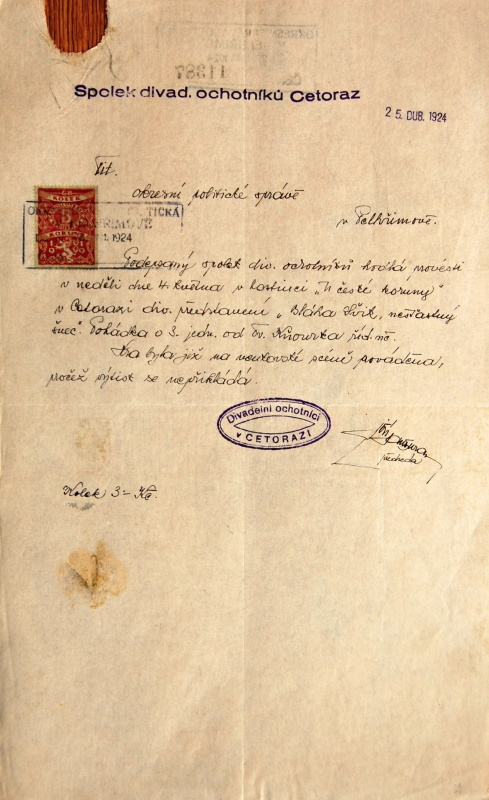 11387
Spolek divad. ochotníků Cetoraz
25. DUB. 1924
Tit.
okresní politické správě
v Pelhřimově.
KOLEK
5
1924
Podepsaný spolek div. ochotníků hodlá provésti
v neděli dne 4. května v hostinci „U české koruny"
v Cetorazi div. představení „Bláha Švík, nešťastný
švec". Pohádka o 3. jedn. od Fr.
Hra byla již na venkovské scéně prováděna,
pročež výtisk se nepřikládá.
Divadelní ochotníci
v CETORAZI
předseda
Kolek 3- Kč.